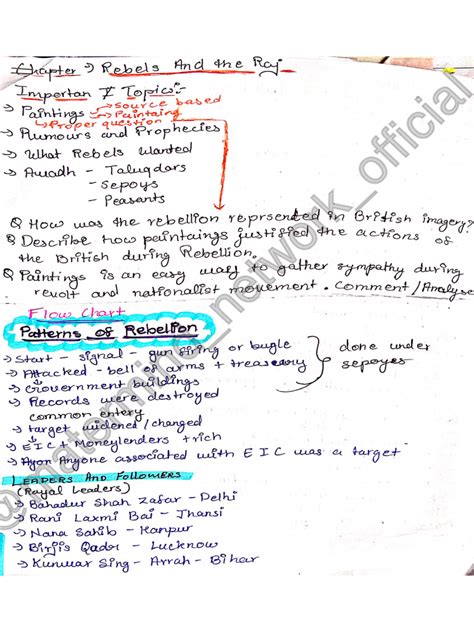 Chapter → Rebels And the Raj
Importan Topics:-
→ Paintings → Source based
→ Paintaing
→ Proper question
→ Rumours and Prophecies
→ What Rebels Wanted
→ Awadh - Taluqdars
- Sepoys
- Peasants
Q How was the rebellion reprsented in British imagery?
Q Describe how paintaings justified the actions of
the British during Rebellion.
Q Paintings is an easy way to gather sympathy during
revolt and nationalist movement. Comment/Analyse
Flow Chart
Patterns of Rebellion
→ Start - signal - gun firing or bugle
→ Attacked - bell of arms + treasuary
→ Government buildings
} done under
sepoyes
→ Records were destroyed
common entery
→ target widened / changed
→ EIC + Moneylenders + rich
→ Anyone associated with EIC was a target
LEADERS AND FOLLOWERS
(Royal Leaders)
→ Bahadur Shah Zafar - Delhi
→ Rani Laxmi Bai - Jhansi
→ Nana Sahib - Kanpur
→ Birjis Qadr - Lucknow
→ Kunwar Sing - Arrah - Bihar
@matermind_network_official